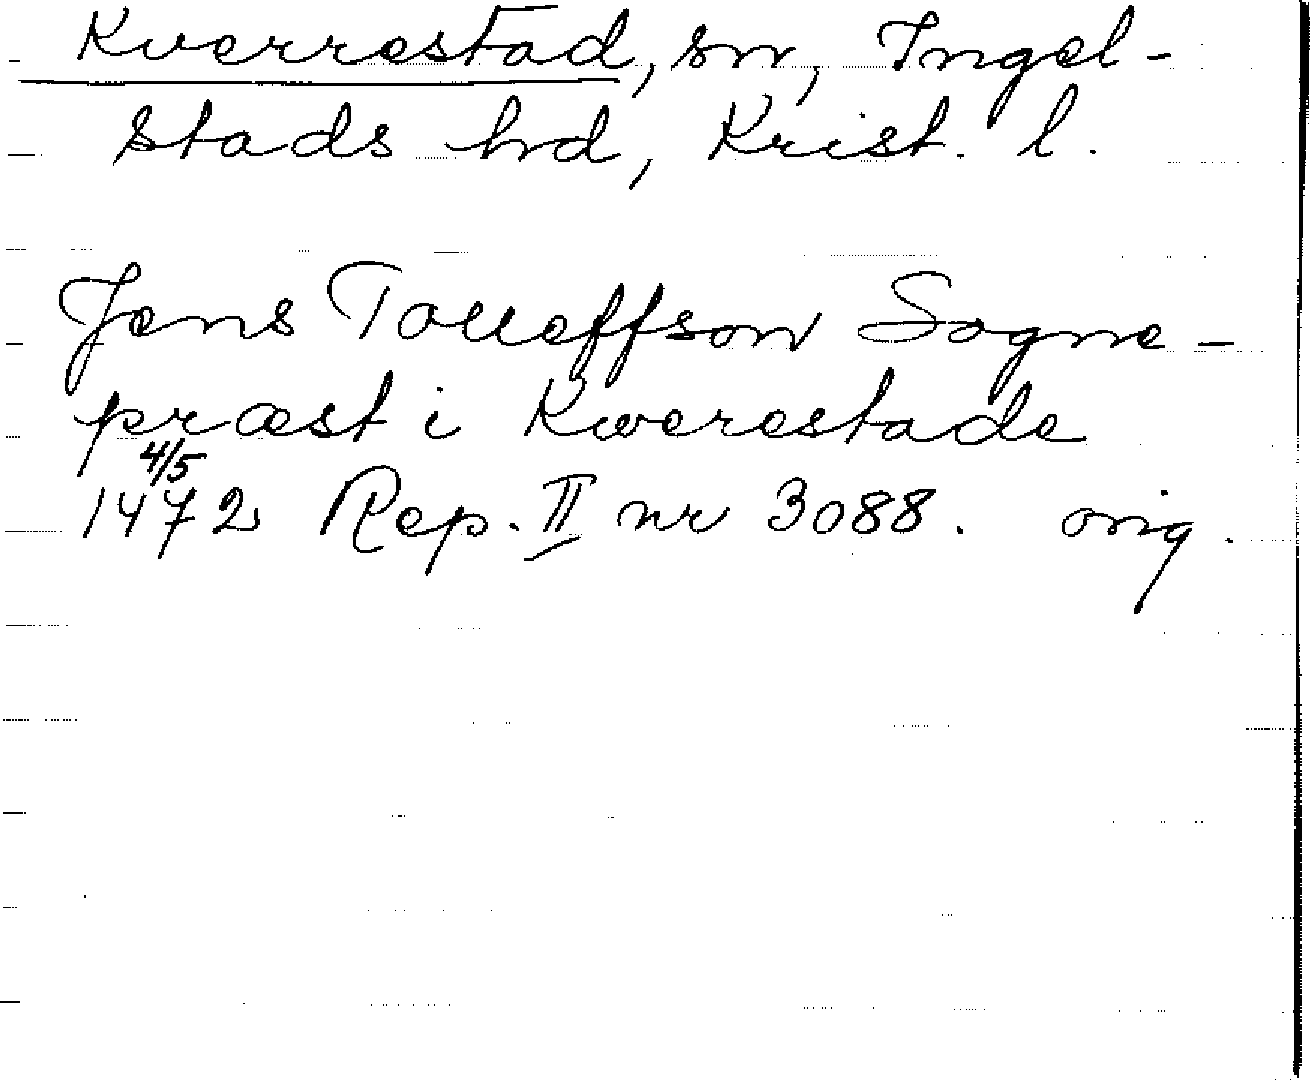 Kverrestad, sn, Ingel-
stads hd, Krist. l.
Jens Tolleffson Sogne-
præst i Kwerestade
4/5
1472 Rep. II nr 3088. orig.